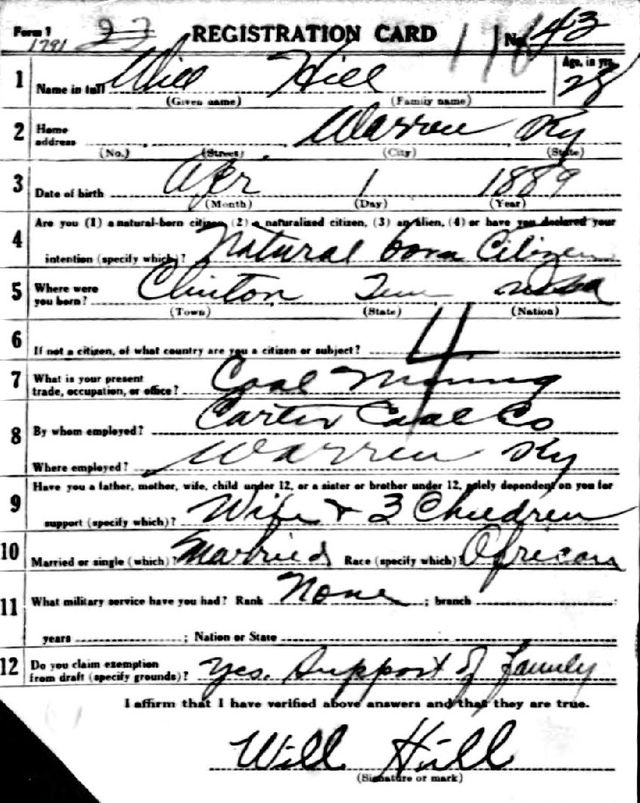 Form 1 1791 23 REGISTRATION CARD No. 143
1 Name in full Will Hill Age, in yrs. 28
(Given name) (Family name)
2 Home address Warren Ky
(No.) (Street) (City) (State)
3 Date of birth Apr 1 1889
(Month) (Day) (Year)
4 Are you (1) a natural-born citizen, (2) a naturalized citizen, (3) an alien, (4) or have you declared your
intention (specify which)? Natural born Citizen
5 Where were you born? Clinton Tenn
(Town) (State) (Nation)
6 If not a citizen, of what country are you a citizen or subject?
4
7 What is your present trade, occupation, or office? Coal Mining
8 By whom employed? Carter Coal Co
Where employed? Warren Ky
9 Have you a father, mother, wife, child under 12, or a sister or brother under 12, solely dependent on you for
support (specify which)? Wife + 3 Children
10 Married or single (which)? Married Race (specify which)? African
11 What military service have you had? Rank None ; branch
years ; Nation or State
12 Do you claim exemption from draft (specify grounds)? Yes. Support of family
I affirm that I have verified above answers and that they are true.
Will Hill
(Signature or mark)